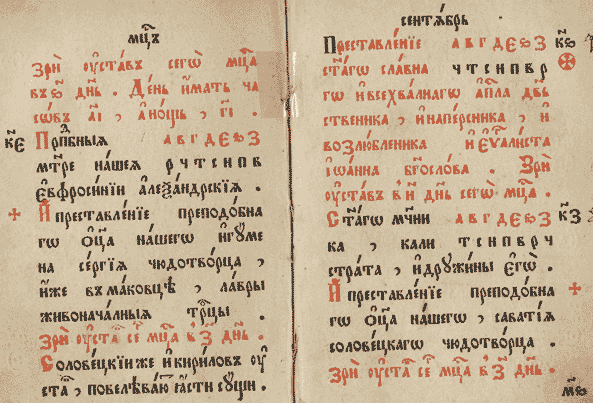 мⷭ҇цъ
Зрѝ ᲂу҆ста́въ сегѡ̀ мⷭ҇ца
въ ѕ҃ дн҃ь. Де́нь и҆́мать ча
сѡ́въ а҃і, а҆но́щь, г҃і.
к҃є Прпⷣбныѧ а в г д є ѕ з
мт҃ре на́шеѧ р ч т с н п в
є҆ѵфросѝнїи а҆леѯа́ндрскїѧ.
И҆ преставле́нїе преподо́бна
гѡ ѻ҆ц҃а̀ на́шегѡ и҆гꙋ́ме
на се́ргїѧ чюдотво́рца,
и҆́же въ ма́ковцѣ, ла́вры
живонача́лныѧ трⷪ҇цы.
Зрѝ ᲂу҆ста́ сеⷢ҇ мⷭ҇ца в з҃ дн҃ь.
Солове́цкїи же и҆ кири́ловъ ᲂу҆
ста́ⷡ, повелѣва́ю
сентѧ́брь
Преставле́нїе а в г д є ѕ з к҃ѕ
ст҃а́гѡ сла́вна ч т с н п в р
гѡ и҆ всехва́лнагѡ а҆пⷭ҇ла дв҃ь
ственика, и҆ напе́рсника, и҆
возлю́бленика и҆ є҆ѵⷢ҇али́ста
і҆ѡа́нна бг҃осло́ва. Зрѝ
ᲂу҆ста́въ в и҃ дн҃ь сегѡ̀ мⷭ҇ца.
Ст҃а́гѡ мч҃ни а в г д є ѕ з к҃з
ка, кали т с н п в р ч
стра́та, и҆ дрꙋжи́ны є҆гѡ̀.
И҆ преставле́нїе преподо́бна
гѡ ѻ҆ц҃а̀ на́шегѡ, сава́тїѧ
солове́цкагѡ чюдотво́рца.
Зрѝ ᲂу҆ста́ сеⷢ҇ мⷭ҇ца в з҃ дн҃ь.
м҃ѕ